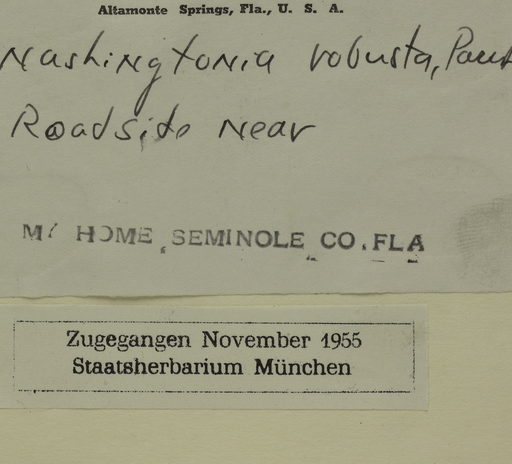 Altamonte Springs, Fla., U. S. A.
Washingtonia robusta,
Roadside near
MY HOME, SEMINOLE CO. FLA
Zugegangen November 1955
Staatsherbarium München